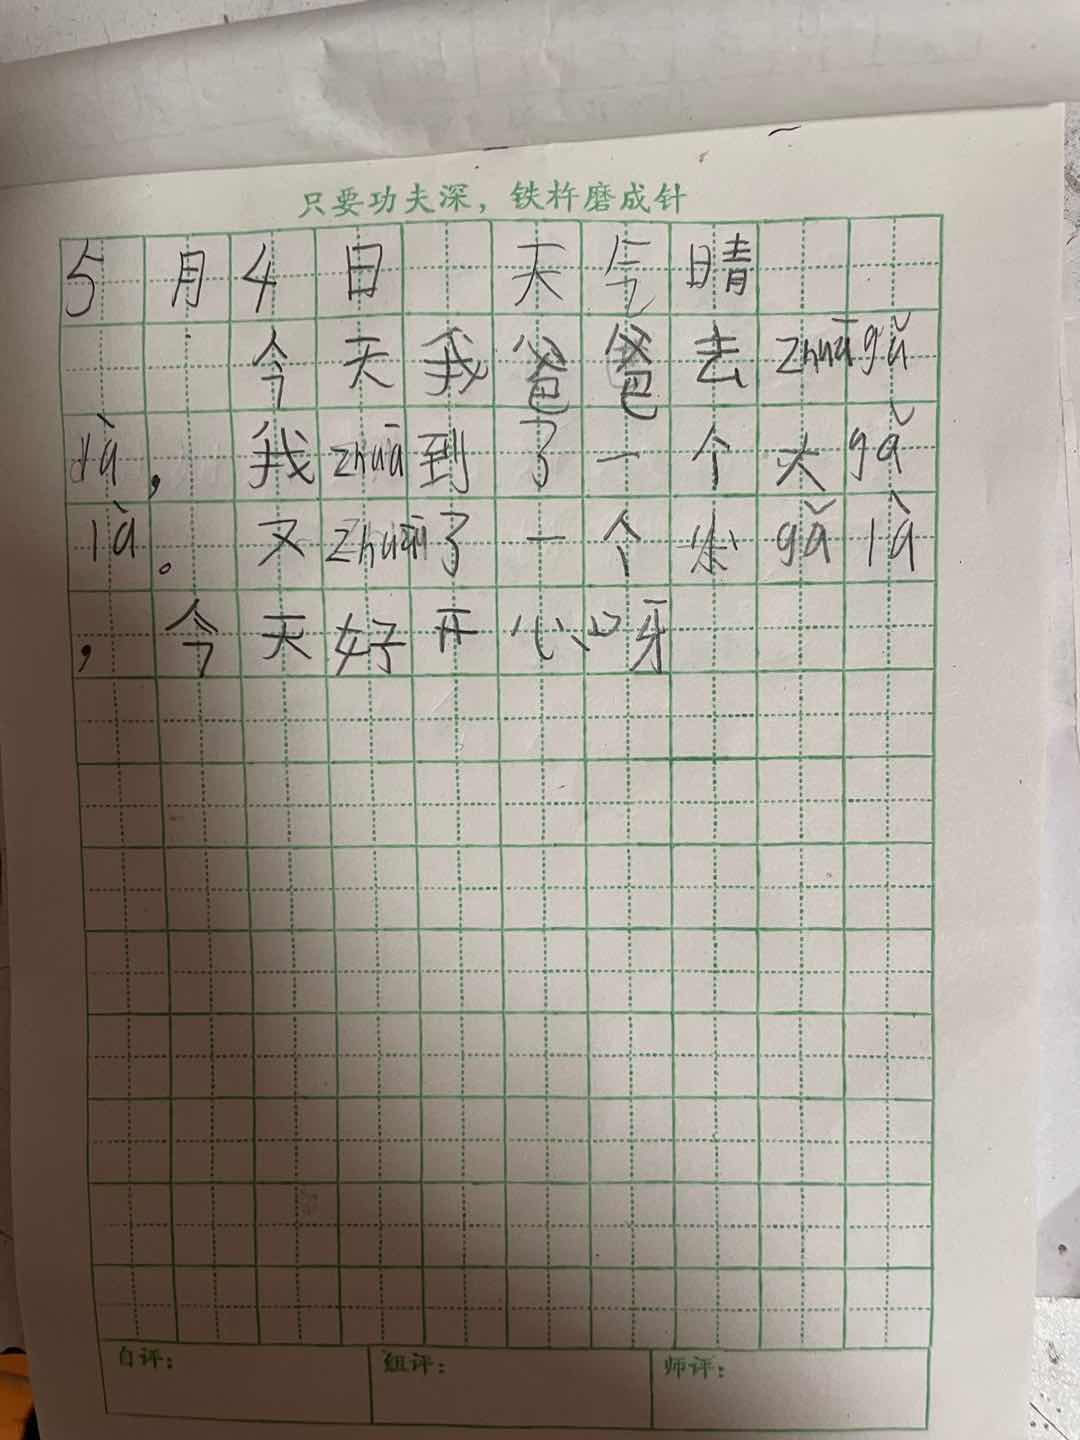 只要功夫深，铁杵磨成针
5月4日 天气晴
今天我爸爸去zhuāgǔ
là，我zhuā到了一个大gǎ
là。又zhuā了一个小gǎlà
，今天好开心呀
自评： 组评： 师评：